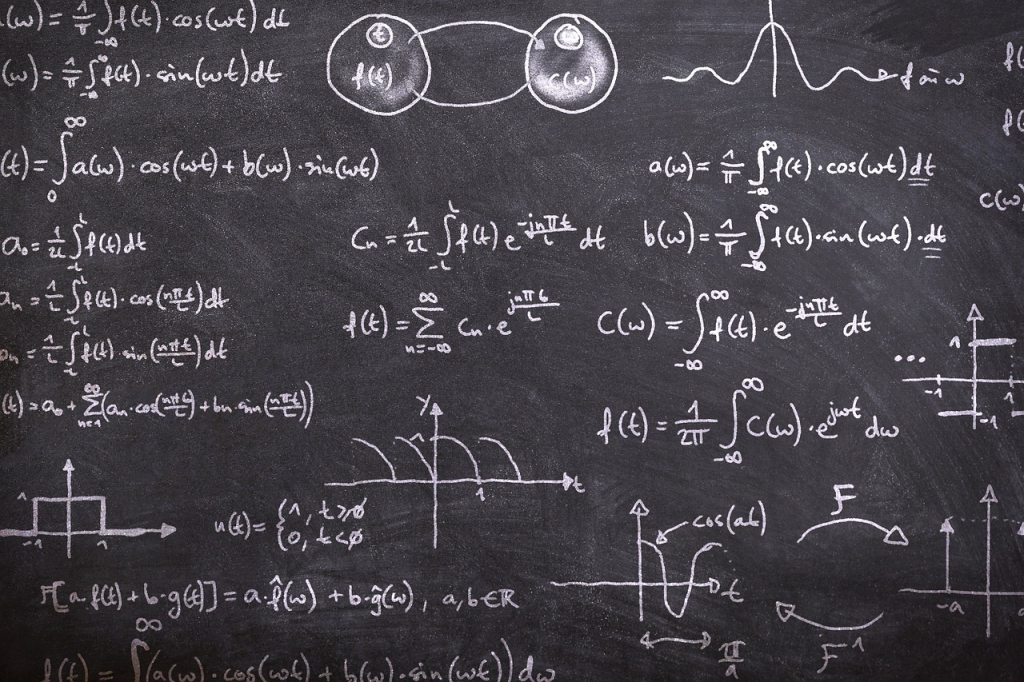 (ω) = 1/π ∫_{-∞} f(t)·cos(ωt) dt
(ω) = 1/π ∫_{-∞} f(t)·sin(ωt) dt
t
f(t)
C(ω)
f ω
f(
f(
(t) = ∫_0^∞ a(ω)·cos(ωt) + b(ω)·sin(ωt)
a(ω) = 1/π ∫_{-∞}^∞ f(t)·cos(ωt) dt
C(ω)
a₀ = 1/2L ∫_{-L}^L f(t) dt
Cn = 1/2L ∫_{-L}^L f(t) e^{-jnπt/L} dt
b(ω) = 1/π ∫_{-∞}^∞ f(t)·sin(ωt)·dt
an = 1/L ∫_{-L}^L f(t)·cos(nπt/L) dt
f(t) = ∑_{n=-∞}^∞ Cn·e^{jnπt/L}
C(ω) = ∫_{-∞}^∞ f(t)·e^{-jnπt/L} dt
bn = 1/L ∫_{-L}^L f(t)·sin(nπt/L) dt
... -1 1 1 -1
(t) = a₀ + ∑_{n=1}^∞ (an·cos(nπt/L) + bn·sin(nπt/L))
y 1 1 t
f(t) = 1/2π ∫_{-∞}^∞ C(ω)·e^{jωt} dω
1 -1 1
u(t) = {1, t≥0
0, t<0
cos(at)
t
π/a
F
F⁻¹
-a
F[a·f(t) + b·g(t)] = a·f̂(ω) + b·ĝ(ω), a,b∈ℝ
f(t) = ∫^∞ (a(ω)·cos(ωt) + b(ω)·sin(ωt)) dω